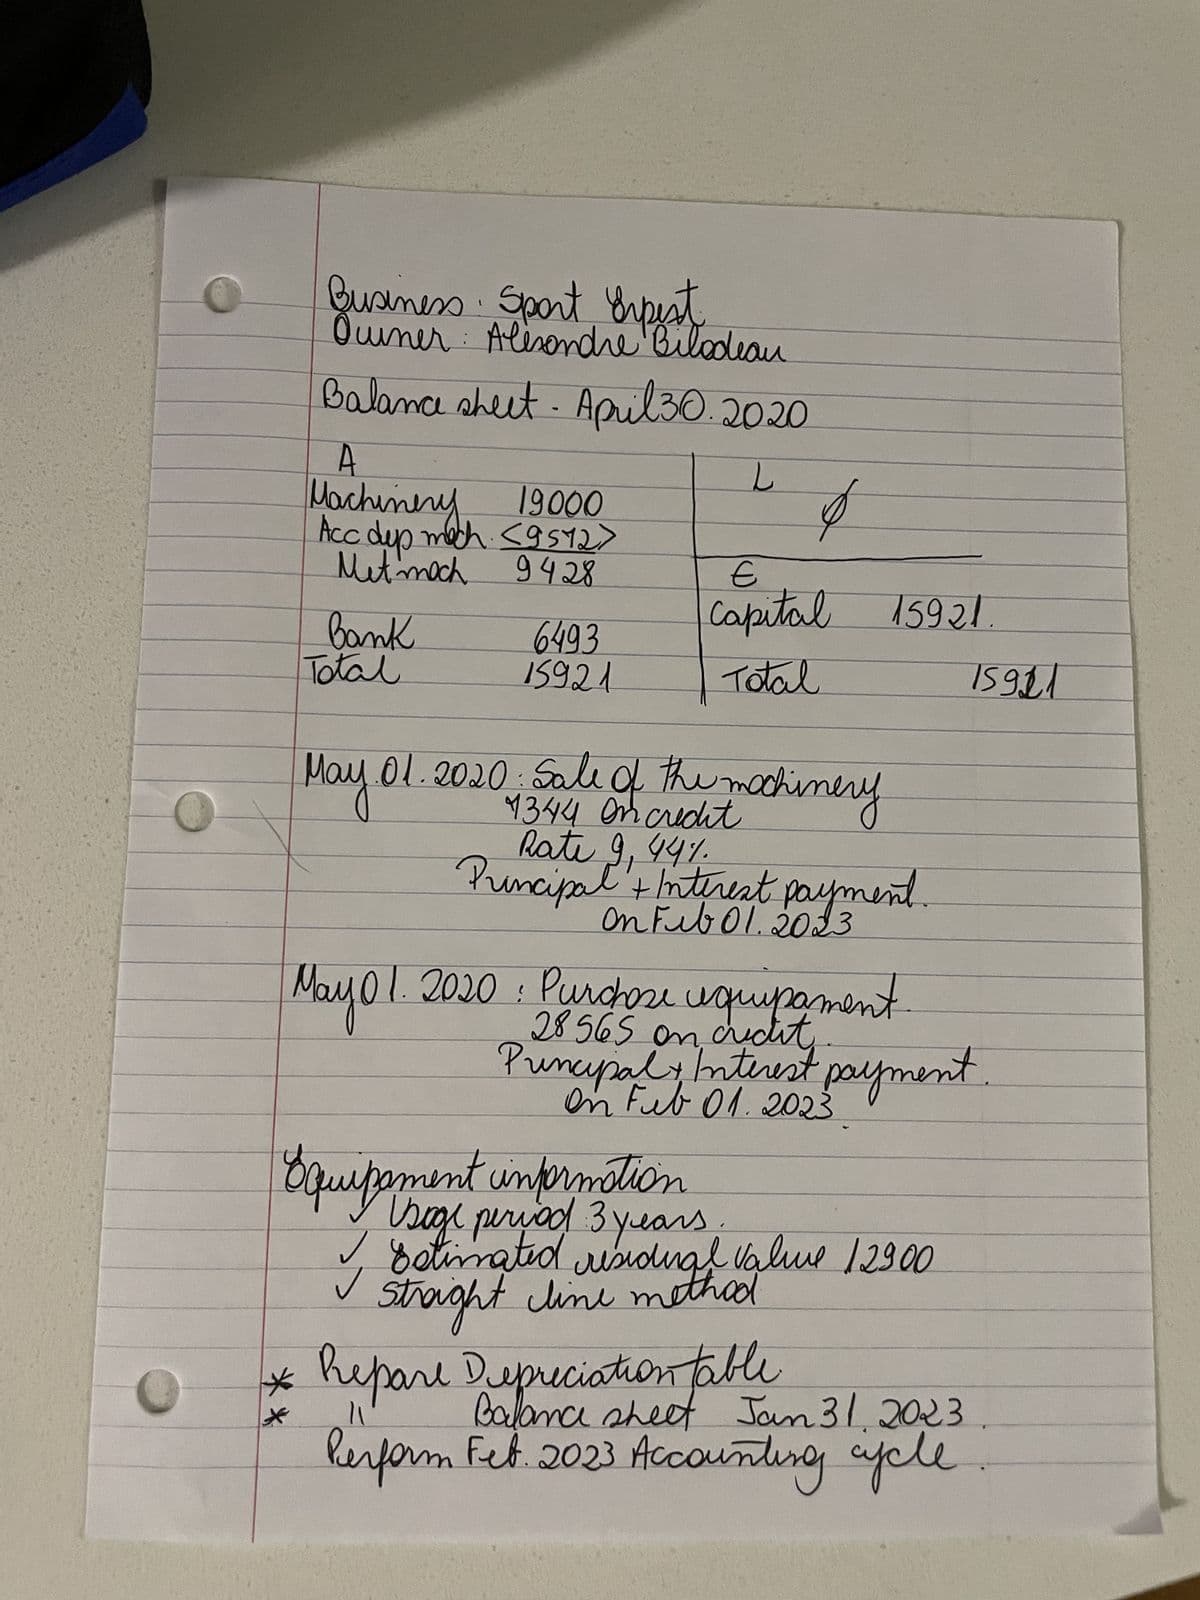 Business : Sport Expert
Owner : Alexandre Bilodeau
Balance sheet - April 30. 2020
A
Machinery 19000
Acc dep mach. <9572>
Net mach 9428
Bank 6493
Total 15921
L
∅
E
Capital 15921.
Total 15921
May 01. 2020 : Sale of the machinery
7344 On credit
Rate 9,44%.
Principal + Interest payment.
On Feb 01. 2023
May 01. 2020 : Purchase equipament.
28565 on credit.
Principal + Interest payment.
On Feb 01. 2023
Equipament information
✓ Usage period 3 years.
✓ Estimated residual value 12900
✓ Straight line method
* Prepare Depreciation table
* " Balance sheet Jan 31. 2023.
Perform Feb. 2023 Accounting cycle.